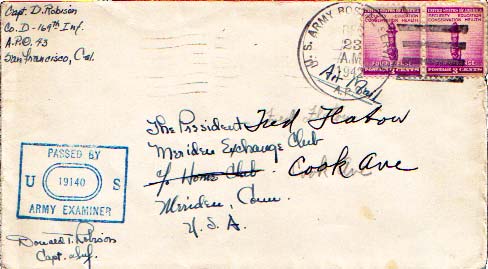 Capt. D. Robison
Co. D - 169th Inf.
A.P.O. 43
San Francisco, Cal.
U.S. ARMY POSTAL
23
A.M.
194
A.P.
UNITED STATES OF AMERICA
SECURITY EDUCATION
CONSERVATION HEALTH
FOR DEFENSE
POSTAGE 3 CENTS
UNITED STATES OF AMERICA
SECURITY EDUCATION
CONSERVATION HEALTH
FOR DEFENSE
POSTAGE 3 CENTS
Air Mail
The President Fred Flatow
Meriden Exchange Club
c/o Home Club Cook Ave
Meriden, Conn.
U.S.A.
PASSED BY
U 19140 S
ARMY EXAMINER
Donald T. Robison
Capt. Inf.